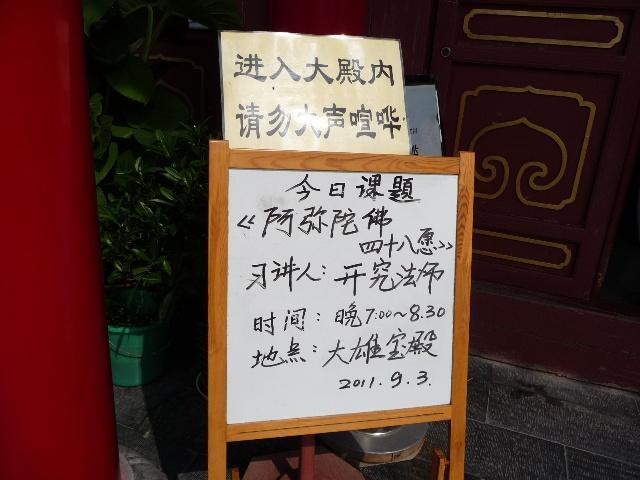 进入大殿内
请勿大声喧哗
今日课题
《阿弥陀佛
四十八愿》
习讲人：开究法师
时间：晚7:00~8.30
地点：大雄宝殿
2011.9.3.